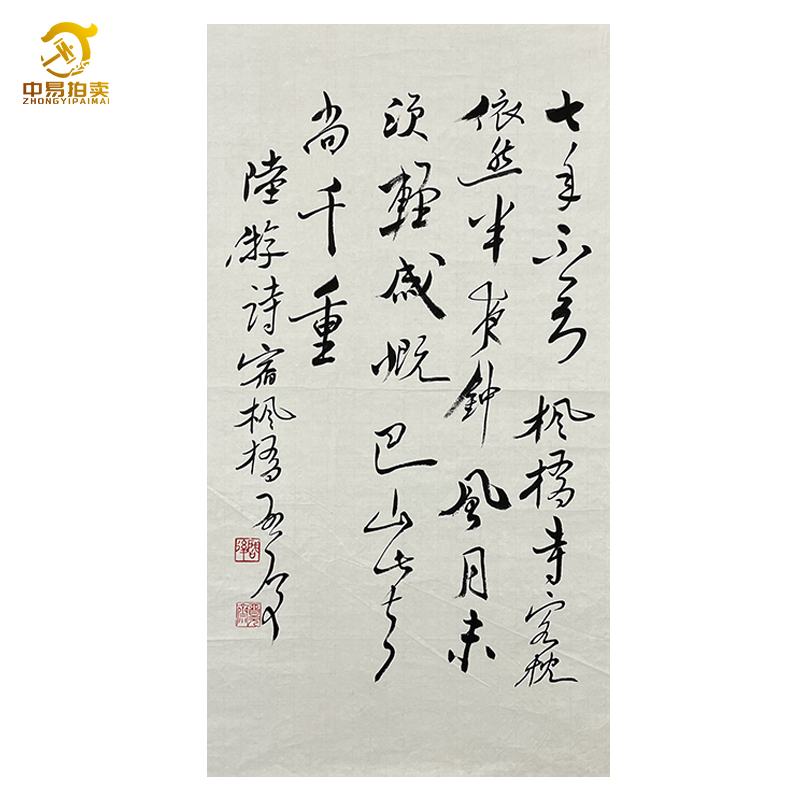 中易拍卖
ZHONGYIPAIMAI
七年不到枫橋寺客枕
依然半夜鐘風月未
須輕感慨巴山此去
尚千重
陸游詩宿枫橋